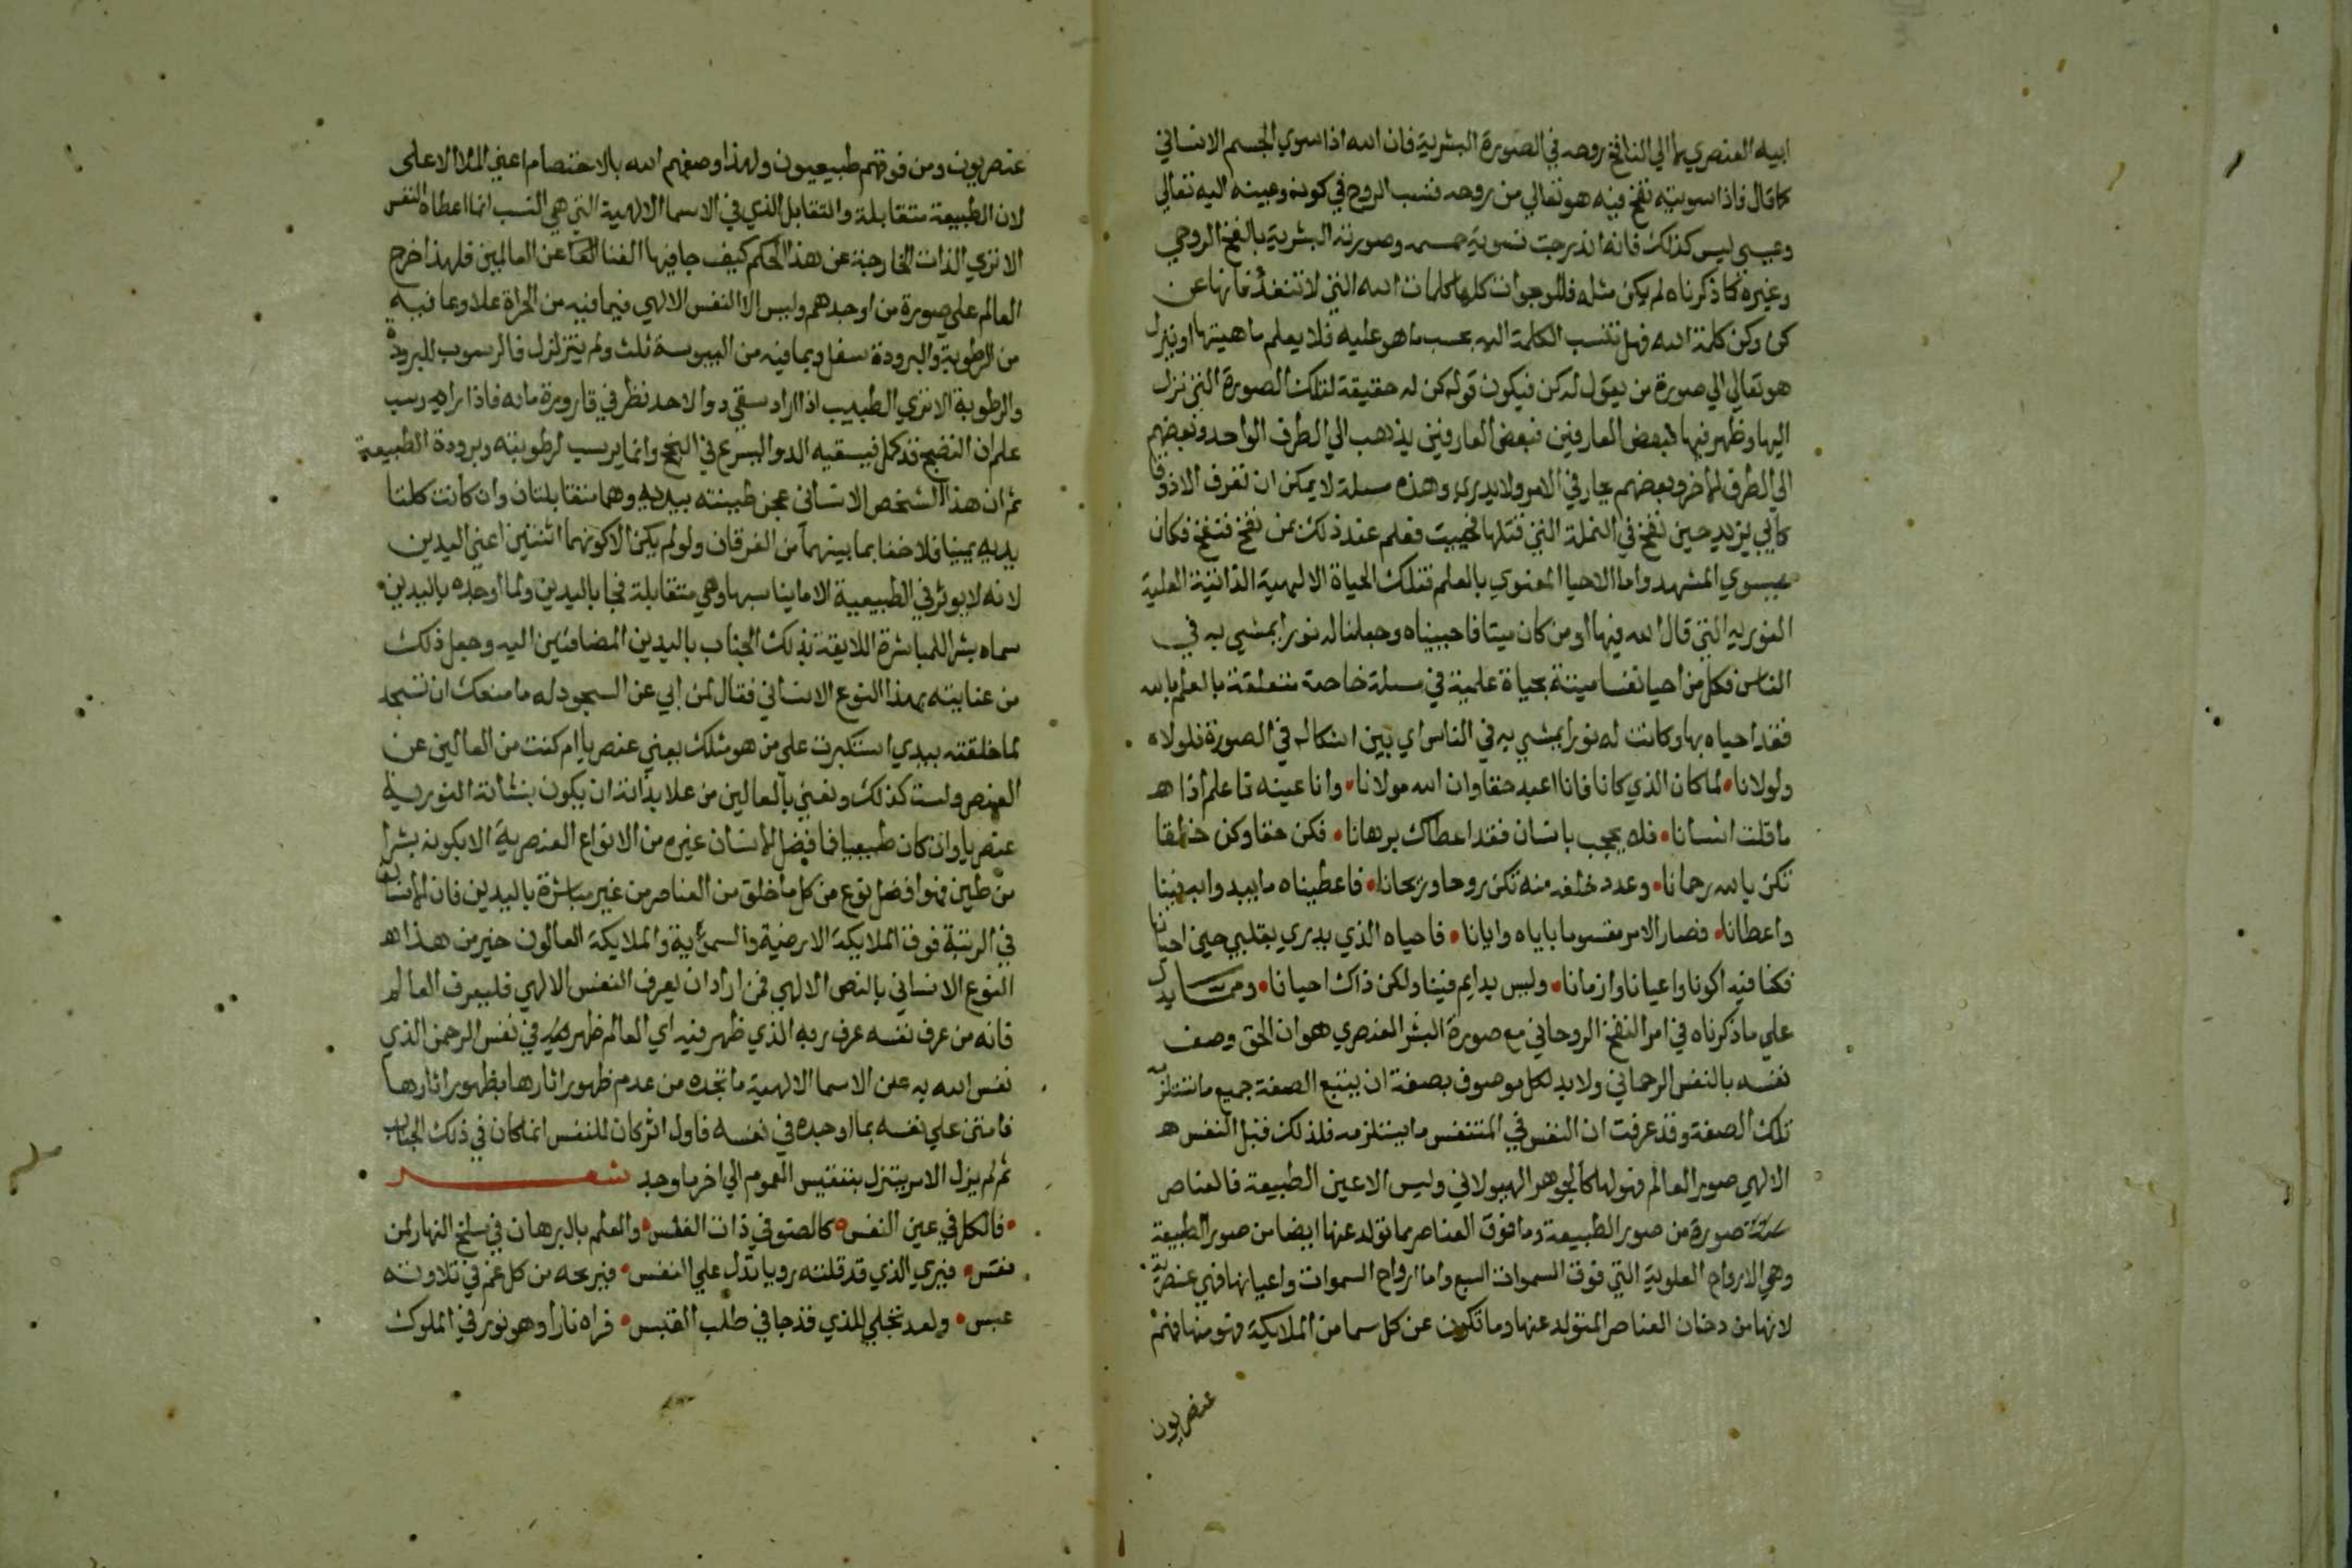 ابيه العنصري لا الي النافخ روحه في الصورة البشرية فان الله اذا سوي الجسم الانساني
كما قال فاذا سويته نفخ فيه هو تعالي من روحه فنسب الروح في كونه وعينه اليه تعالي
وعيسي ليس كذلك فانه اندرجت تسوية جسمه وصورته البشرية بالنفخ الروحي
وغيره كما ذكرناه لم يكن مثله فالموجودات كلها كلمات الله التي لا تنفذ فانها عن
كن وكن كلمة الله فهل تنسب الكلمة اليه بحسب ما هو عليه فلا يعلم ماهيتها او ينزل
هو تعالي الي صورة من يقول له كن فيكون قوله كن له حقيقة لتلك الصورة التي نزل
اليها وظهر فيها فبعض العارفين فبعض العارفين يذهب الي الطرف الواحد وبعضهم
الي الطرف الاخر وبعضهم يحار في الامر ولا يدري وهذه مسلة لا يمكن ان تعرف الا ذوقا
كابي يزيد حين نفخ في النملة التي قتلها فحييت فعلم عند ذلك بمن نفخ فنفخ فكان
عيسوي المشهد واما الاحيا المعنوي بالعلم فتلك الحياة الالهية الذاتية العلية
النوريه التي قال الله فيها او من كان ميتا فاحييناه وجعلنا له نورا يمشي به في
الناس فكل من احيا نفسا ميتة بحياة علمية في مسلة خاصة متعلقة بالعلم بالله
فقد احياه بها وكانت له نورا يمشي به في الناس اي بين اشكاله في الصورة فلولاه
ولولانا • لما كان الذي كانا فانا اعبد حقا وان الله مولانا • وانا عينه فاعلم اذا
ما قلت انسانا • فلا تحجب بانسان فقد اعطاك برهانا • فكن حقا وكن خلقا
تكن بالله رحمانا • وغد خلقه منه تكن روحا وريحانا • فاعطيناه ما يبدو به فينا
واعطانا • فصار الامر مقسوما باياه وايانا • فاحياه الذي يدري بقلبي حين احيانا
فكنا فيه اكوانا واعيانا وازمانا • وليس بدايم فينا ولكن ذاك احيانا • ومما يدل
علي ما ذكرناه في امر النفخ الروحاني مع صورة البشر العنصري هو ان الحق وصف
نفسه بالنفس الرحماني ولا بد لكل موصوف بصفة ان يتبع الصفة جميع ما تستلزمه
تلك الصفة وقد عرفت ان النفس في المتنفس ما يستلزمه فلذلك قبل النفس
الالهي صور العالم فهو لها كالجوهر الهيولاني وليس الا عين الطبيعة فالعناصر
صورة من صور الطبيعة وما فوق العناصر مما تولد عنها ايضا من صور الطبيعة
وهي الارواح العلوية التي فوق السموات السبع واما ارواح السموات واعيانها فهي عنصرية
لانها من دخان العناصر المتولد عنها وما تكون عن كل سما من الملايكة فهو منها فهم
عنصريون
عنصريون ومن فوقهم طبيعيون ولهذا وصفهم الله بالاختصام اعني الملا الاعلى
لان الطبيعة متقابلة والتقابل الذي في الاسما الالهية التي هي النسب انما اعطاه النفس
الا تري الذات الخارجة عن هذا الحكم كيف جا فيها الغنا عن العالمين فلهذا خرج
العالم علي صورة من اوجدهم وليس الا النفس الالهي فبما فيه من الحرارة علا وبما فيه
من الرطوبة والبرودة سفل وبما فيه من اليبوسة ثبت ولم يتزلزل فالرسوب للبرودة
والرطوبة الا تري الطبيب اذا اراد سقي دوا لاحد نظر في قارورة مائه فاذا راه رسب
علم ان النضج قد كمل فيسقيه الدوا ليسرع في النجح وانما يرسب لرطوبته وبرودة الطبيعية
ثم ان هذا الشخص الانساني عجن طينته بيديه وهما متقابلتان وان كانت كلتا
يديه يمينا فلا خفا بما بينهما من الفرقان ولو لم يكن الا كونهما اثنتين اعني اليدين
لانه لا يوثر في الطبيعية الا ما يناسبها وهي متقابلة فجا باليدين ولما اوجده باليدين •
سماه بشرا للمباشرة اللايقة بذلك الجناب باليدين المضافتين اليه وجعل ذلك
من عنايته بهذا النوع الانساني فقال لمن ابي عن السجود له ما منعك ان تسجد
لما خلقته بيدي استكبرت علي من هو مثلك يعني عنصريا ام كنت من العالين عن
العنصر ولست كذلك ونعني بالعالين من علا بذاته ان يكون بنشاته النورية
عنصريا وان كان طبيعيا فما فضل الانسان غيره من الانواع العنصرية الا بكونه بشرا
من طين فهو افضل نوع من كل ما خلق من العناصر من غير مباشرة باليدين فان الانسان
في الرتبة فوق الملايكة الارضية والسمائية والملايكة العالون خير من هذا
النوع الانساني بالنص الالهي فمن اراد ان يعرف النفس الالهي فليعرف العالم
فانه من عرف نفسه عرف ربه الذي ظهر فيه اي العالم ظهر في نفس الرحمن الذي
نفس الله به عن الاسما الالهية ما تجده من عدم ظهور اثارها بظهور اثارها
فامتن علي نفسه بما اوجده في نفسه فاول اثر كان للنفس انما كان في ذلك الجناب
ثم لم يزل الامر يتنزل بتنفيس العموم الي اخر ما وجد شعر
• فالكل في عين النفس • كالضو في ذات الغلس • والعلم بالبرهان في سلخ النهار لمن
نعس • فيري الذي قد قلته رويا تدل علي النفس • فيريحه من كل غم في تلاوته
عبس • ولقد تجلي للذي قد جا في طلب القبس • فراه نارا وهو نور في الملوك